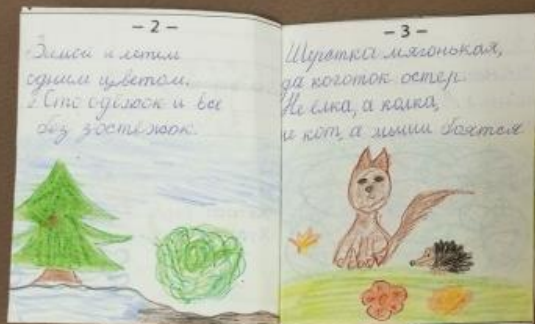 - 2 -
Зимой и летом
одним цветом.
Сто одёжок и все
без застежок.
- 3 -
Шерстка мягонькая,
да коготок остер.
Не елка, а колка,
не кот, а мыши боятся